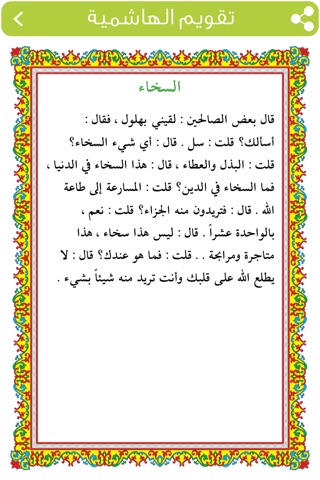 تقويم الهاشمية
السخاء
قال بعض الصالحين : لقيني بهلول ، فقال :
أسألك؟ قلت : سل . قال : أي شيء السخاء؟
قلت : البذل والعطاء ، قال : هذا السخاء في الدنيا ،
فما السخاء في الدين؟ قلت : المسارعة إلى طاعة
الله . قال : فتريدون منه الجزاء؟ قلت : نعم ،
بالواحدة عشراً . قال : ليس هذا سخاء ، هذا
متاجرة ومرابحة . . قلت : فما هو عندك؟ قال : لا
يطلع الله على قلبك وأنت تريد منه شيئاً بشيء .